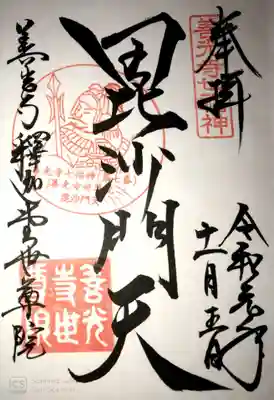 奉拝
善光寺七福神
令和元年
十一月五日
毘沙門天
毘沙門天
善光寺釋迦堂世尊院
善光
寺世
尊院